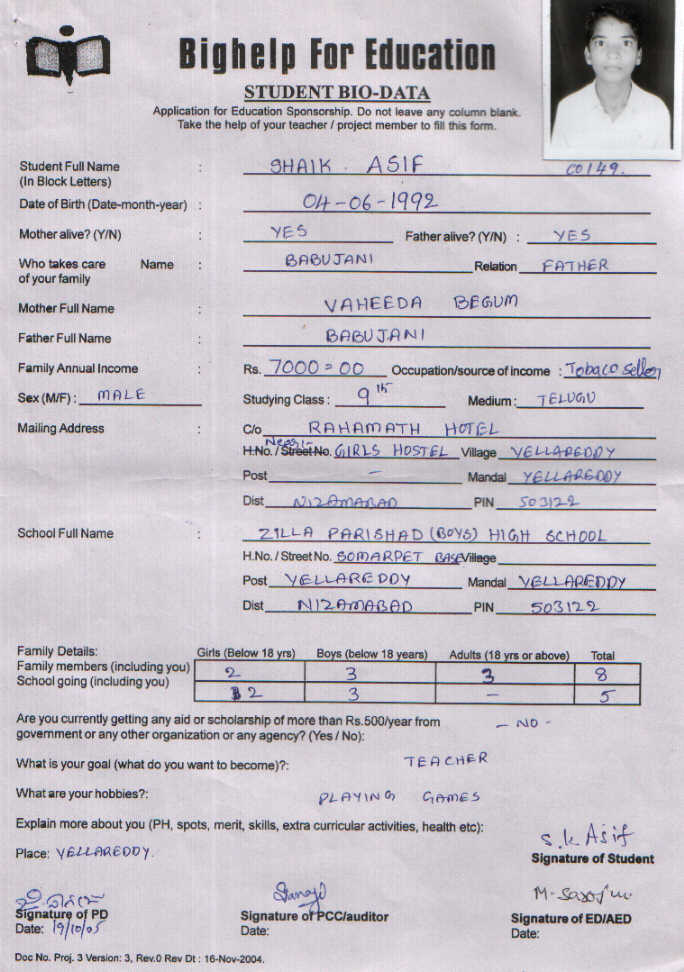 Bighelp For Education
STUDENT BIO-DATA
Application for Education Sponsorship. Do not leave any column blank.
Take the help of your teacher / project member to fill this form.
Student Full Name : SHAIK . ASIF C0149.
(In Block Letters)
Date of Birth (Date-month-year) : 04-06-1992
Mother alive? (Y/N) : YES Father alive? (Y/N) : YES
Who takes care Name : BABUJANI Relation FATHER
of your family
Mother Full Name : VAHEEDA BEGUM
Father Full Name : BABUJANI
Family Annual Income : Rs. 7000=00 Occupation/source of income : Tobaco seller
Sex (M/F) : MALE Studying Class : 9th Medium : TELUGU
Mailing Address : C/o RAHAMATH HOTEL
H.No. / Street No. Near:- GIRLS HOSTEL Village YELLAREDDY
Post - Mandal YELLAREDDY
Dist NIZAMABAD PIN 503122
School Full Name : ZILLA PARISHAD (BOYS) HIGH SCHOOL
H.No. / Street No. SOMARPET BASE Village
Post YELLAREDDY Mandal YELLAREDDY
Dist NIZAMABAD PIN 503122
Family Details: Girls (Below 18 yrs) Boys (below 18 years) Adults (18 yrs or above) Total
Family members (including you) 2 3 3 8
School going (including you) 2 3 - 5
Are you currently getting any aid or scholarship of more than Rs.500/year from - NO -
government or any other organization or any agency? (Yes / No):
What is your goal (what do you want to become)?: TEACHER
What are your hobbies?: PLAYING GAMES
Explain more about you (PH, spots, merit, skills, extra curricular activities, health etc):
S.k Asif
Place: YELLAREDDY. Signature of Student
Signature of PD Signature of PCC/auditor Signature of ED/AED
Date: 19/10/05 Date: Date:
Doc No. Proj. 3 Version: 3, Rev.0 Rev Dt : 16-Nov-2004.